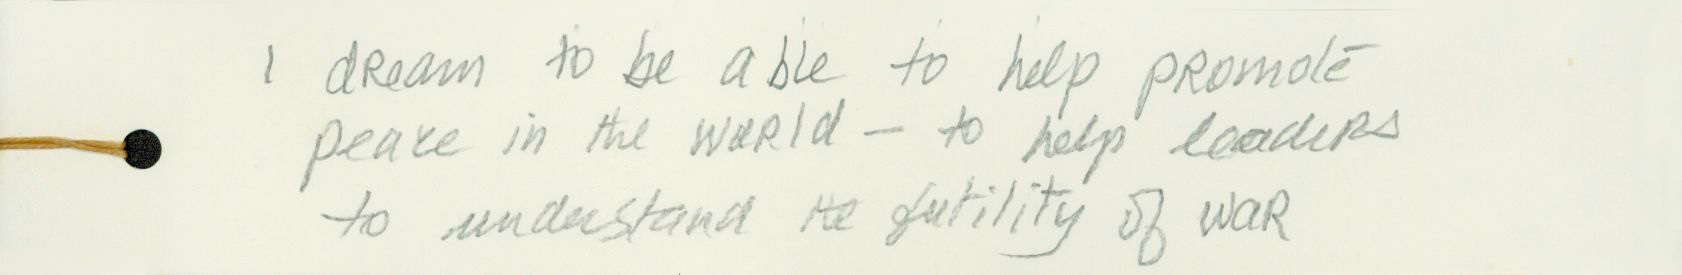 I dream to be able to help promote
peace in the world – to help leaders
to understand the futility of war